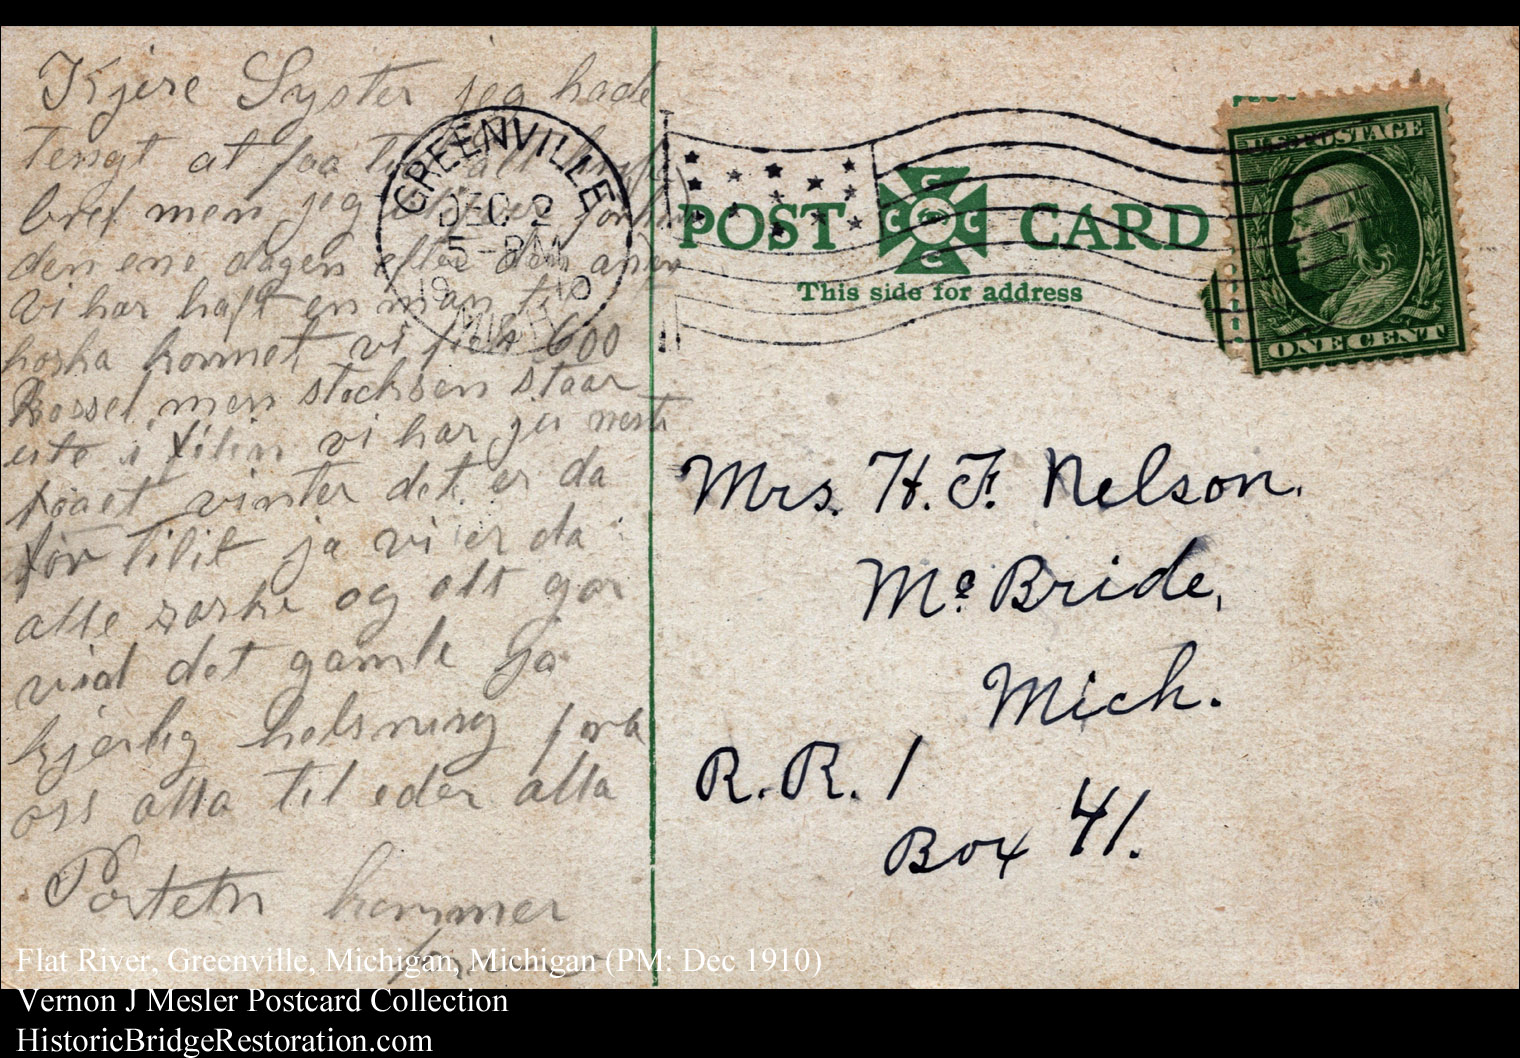 Kjere Syster jeg hade
tengt at faa til
bref men jeg
den ene dagen efter den anen
vi har haft en man til
hoska kornet vi fick 600
Bossel men stocksen staar
ute i vi har ju
vinter det er da
tilit ja vi er da
alle og alt gor
vid det gamle ja
kjerlig helsning fra
oss alla til eder alla
kommer
GREENVILLE
DEC 2
5-PM
1910
MICH.
POST CARD
This side for address
U.S. POSTAGE
ONE CENT
Mrs. H. F. Nelson.
Mc Bride,
Mich.
R.R. 1
Box 41.
Flat River, Greenville, Michigan, Michigan (PM: Dec 1910)
Vernon J Mesler Postcard Collection
HistoricBridgeRestoration.com